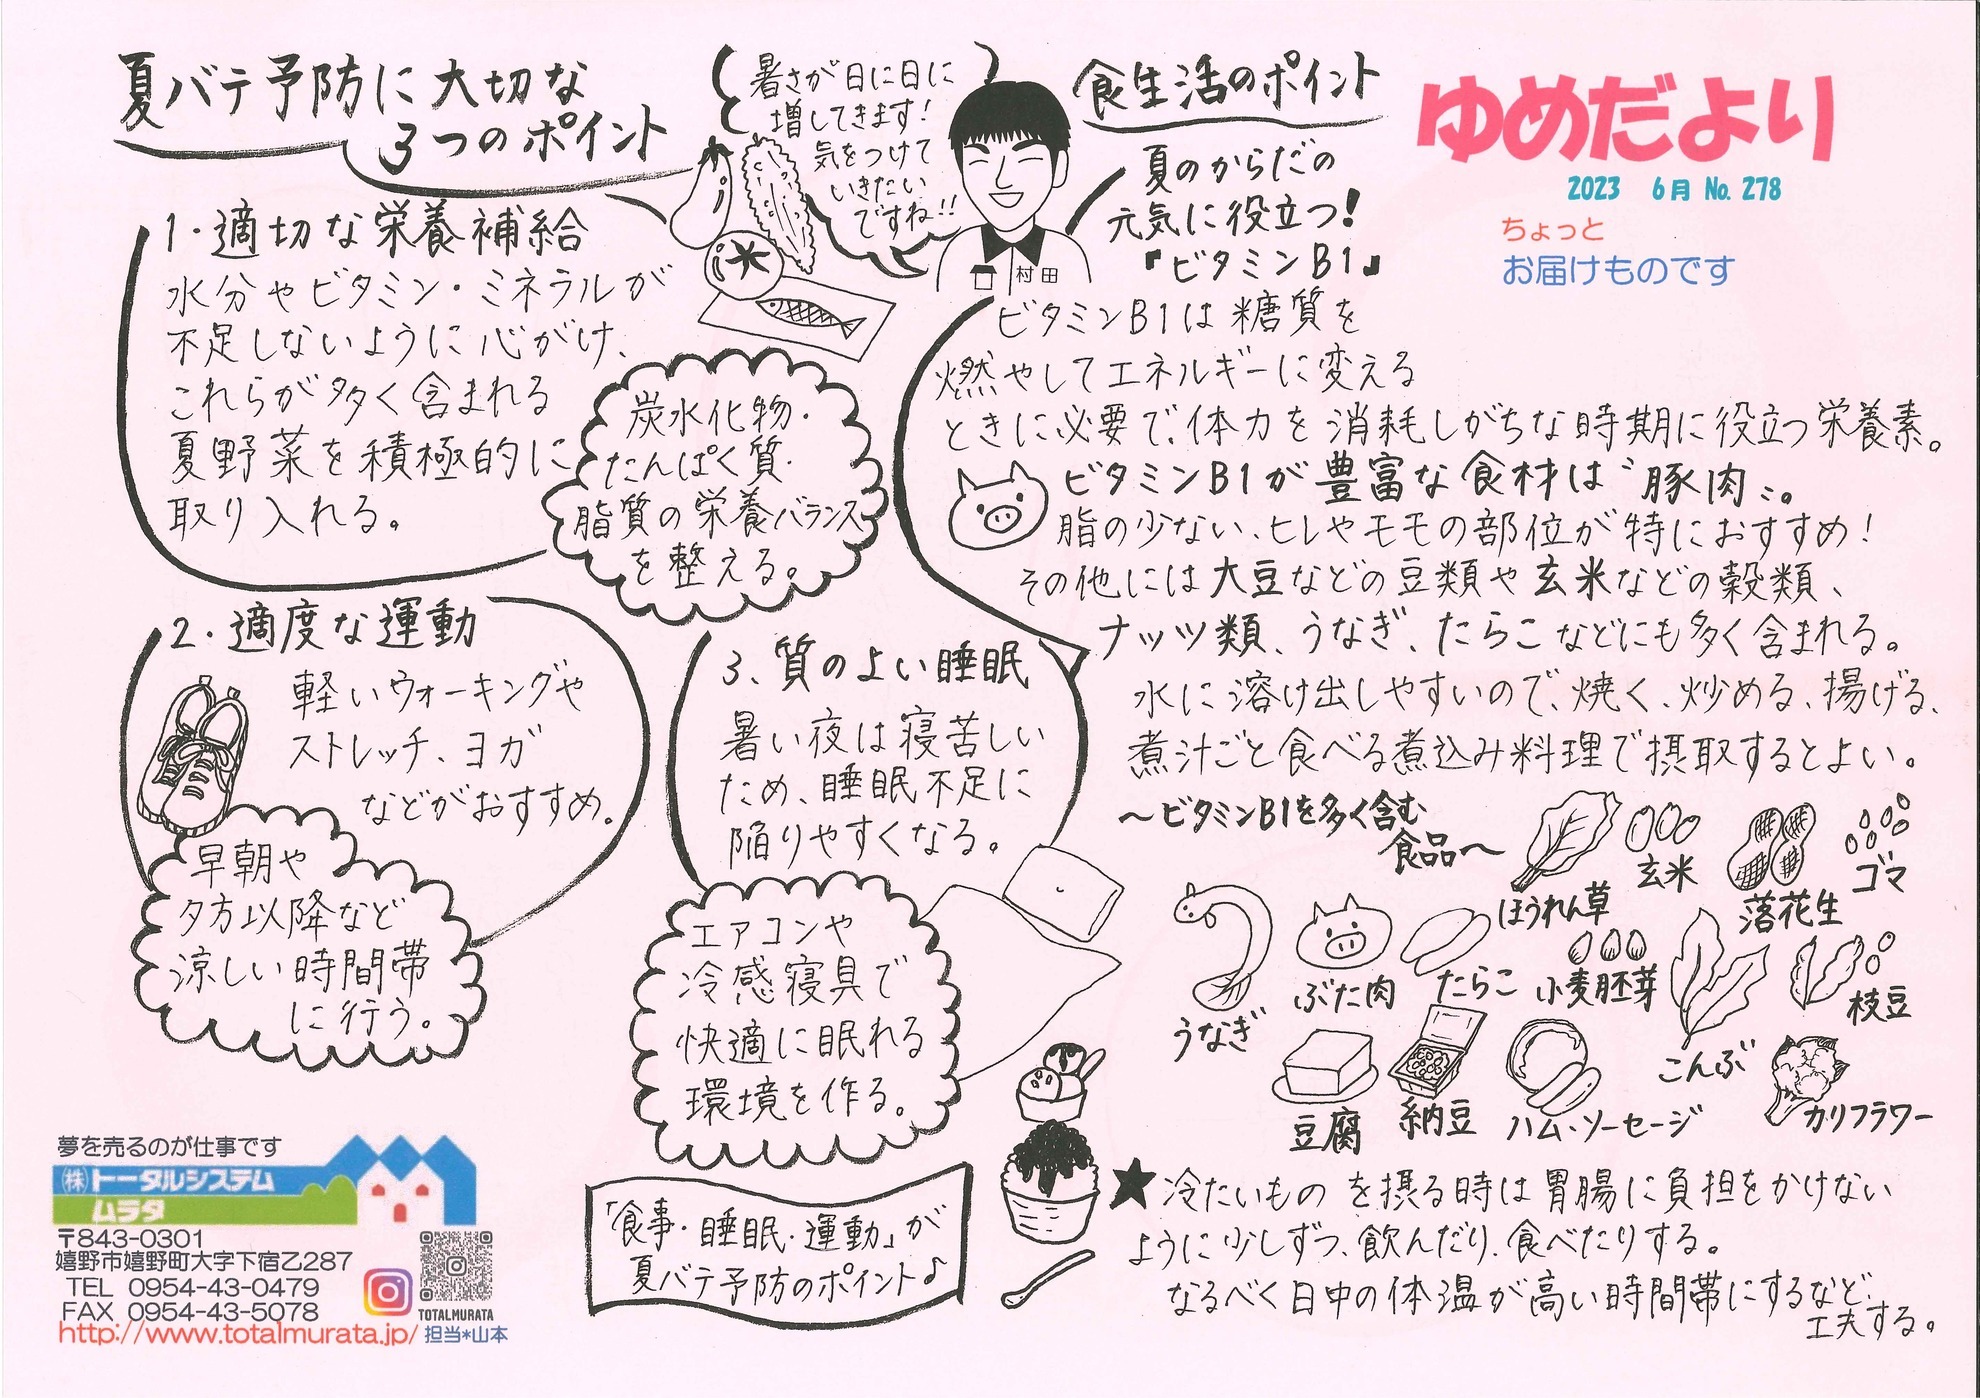 ゆめだより
2023 6月 No. 278
ちょっと
お届けものです
夏バテ予防に大切な
3つのポイント
暑さが日に日に
増してきます!
気をつけて
いきたい
ですね!!
村田
1.適切な栄養補給
水分やビタミン・ミネラルが
不足しないように心がけ、
これらが多く含まれる
夏野菜を積極的に
取り入れる。
炭水化物・
たんぱく質・
脂質の栄養バランス
を整える。
2.適度な運動
軽いウォーキングや
ストレッチ、ヨガ
などがおすすめ。
早朝や
夕方以降など
涼しい時間帯
に行う。
3、質のよい睡眠
暑い夜は寝苦しい
ため、睡眠不足に
陥りやすくなる。
エアコンや
冷感寝具で
快適に眠れる
環境を作る。
「食事・睡眠・運動」が
夏バテ予防のポイント♪
食生活のポイント
夏のからだの
元気に役立つ!
『ビタミンB1』
ビタミンB1は糖質を
燃やしてエネルギーに変える
ときに必要で、体力を消耗しがちな時期に役立つ栄養素。
ビタミンB1が豊富な食材は〝豚肉〟。
脂の少ない、ヒレやモモの部位が特におすすめ!
その他には大豆などの豆類や玄米などの穀類、
ナッツ類、うなぎ、たらこなどにも多く含まれる。
水に溶け出しやすいので、焼く、炒める、揚げる、
煮汁ごと食べる煮込み料理で摂取するとよい。
〜ビタミンB1を多く含む
食品〜
ほうれん草
玄米
落花生
ゴマ
うなぎ
ぶた肉
たらこ
小麦胚芽
こんぶ
枝豆
豆腐
納豆
ハム・ソーセージ
カリフラワー
★冷たいものを摂る時は胃腸に負担をかけない
ように少しずつ、飲んだり、食べたりする。
なるべく日中の体温が高い時間帯にするなど、
工夫する。
夢を売るのが仕事です
㈱トータルシステム
ムラタ
〒843-0301
嬉野市嬉野町大字下宿乙287
TEL 0954-43-0479
FAX 0954-43-5078
http://www.totalmurata.jp/
TOTALMURATA
担当*山本